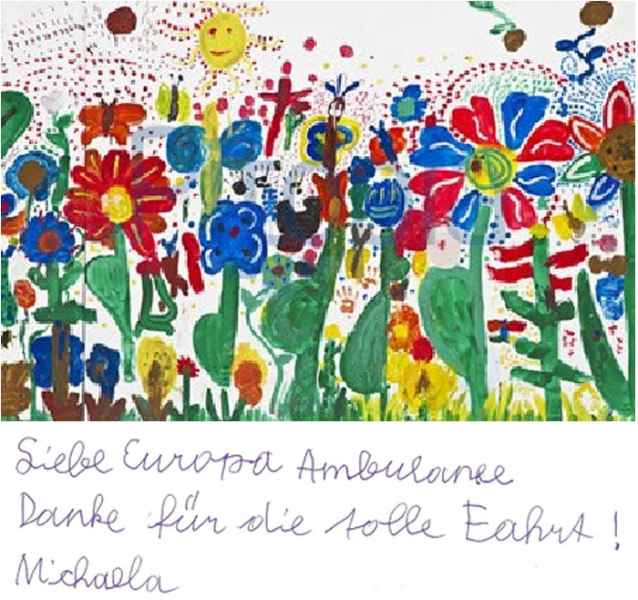 Liebe Europa Ambulance
Danke für die tolle Fahrt!
Michaela